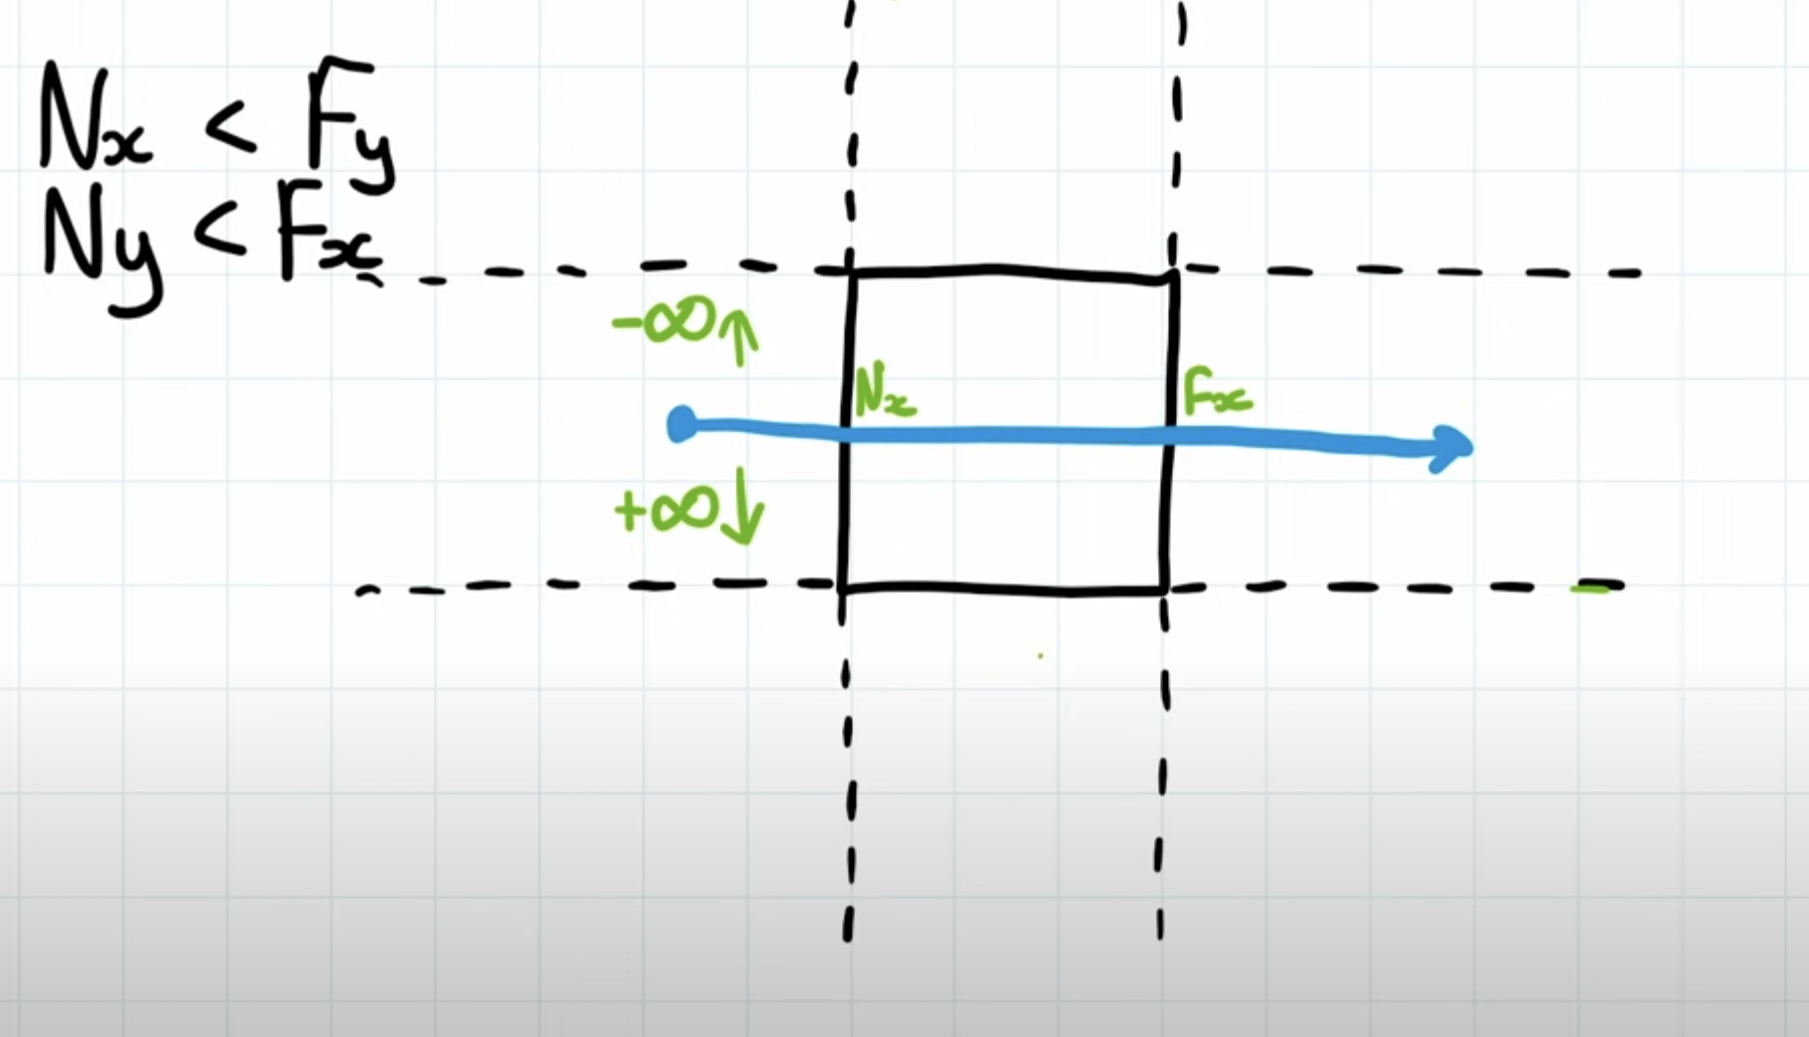 Nx < Fy
Ny < Fx
-∞↑
Nx
Fx
+∞↓